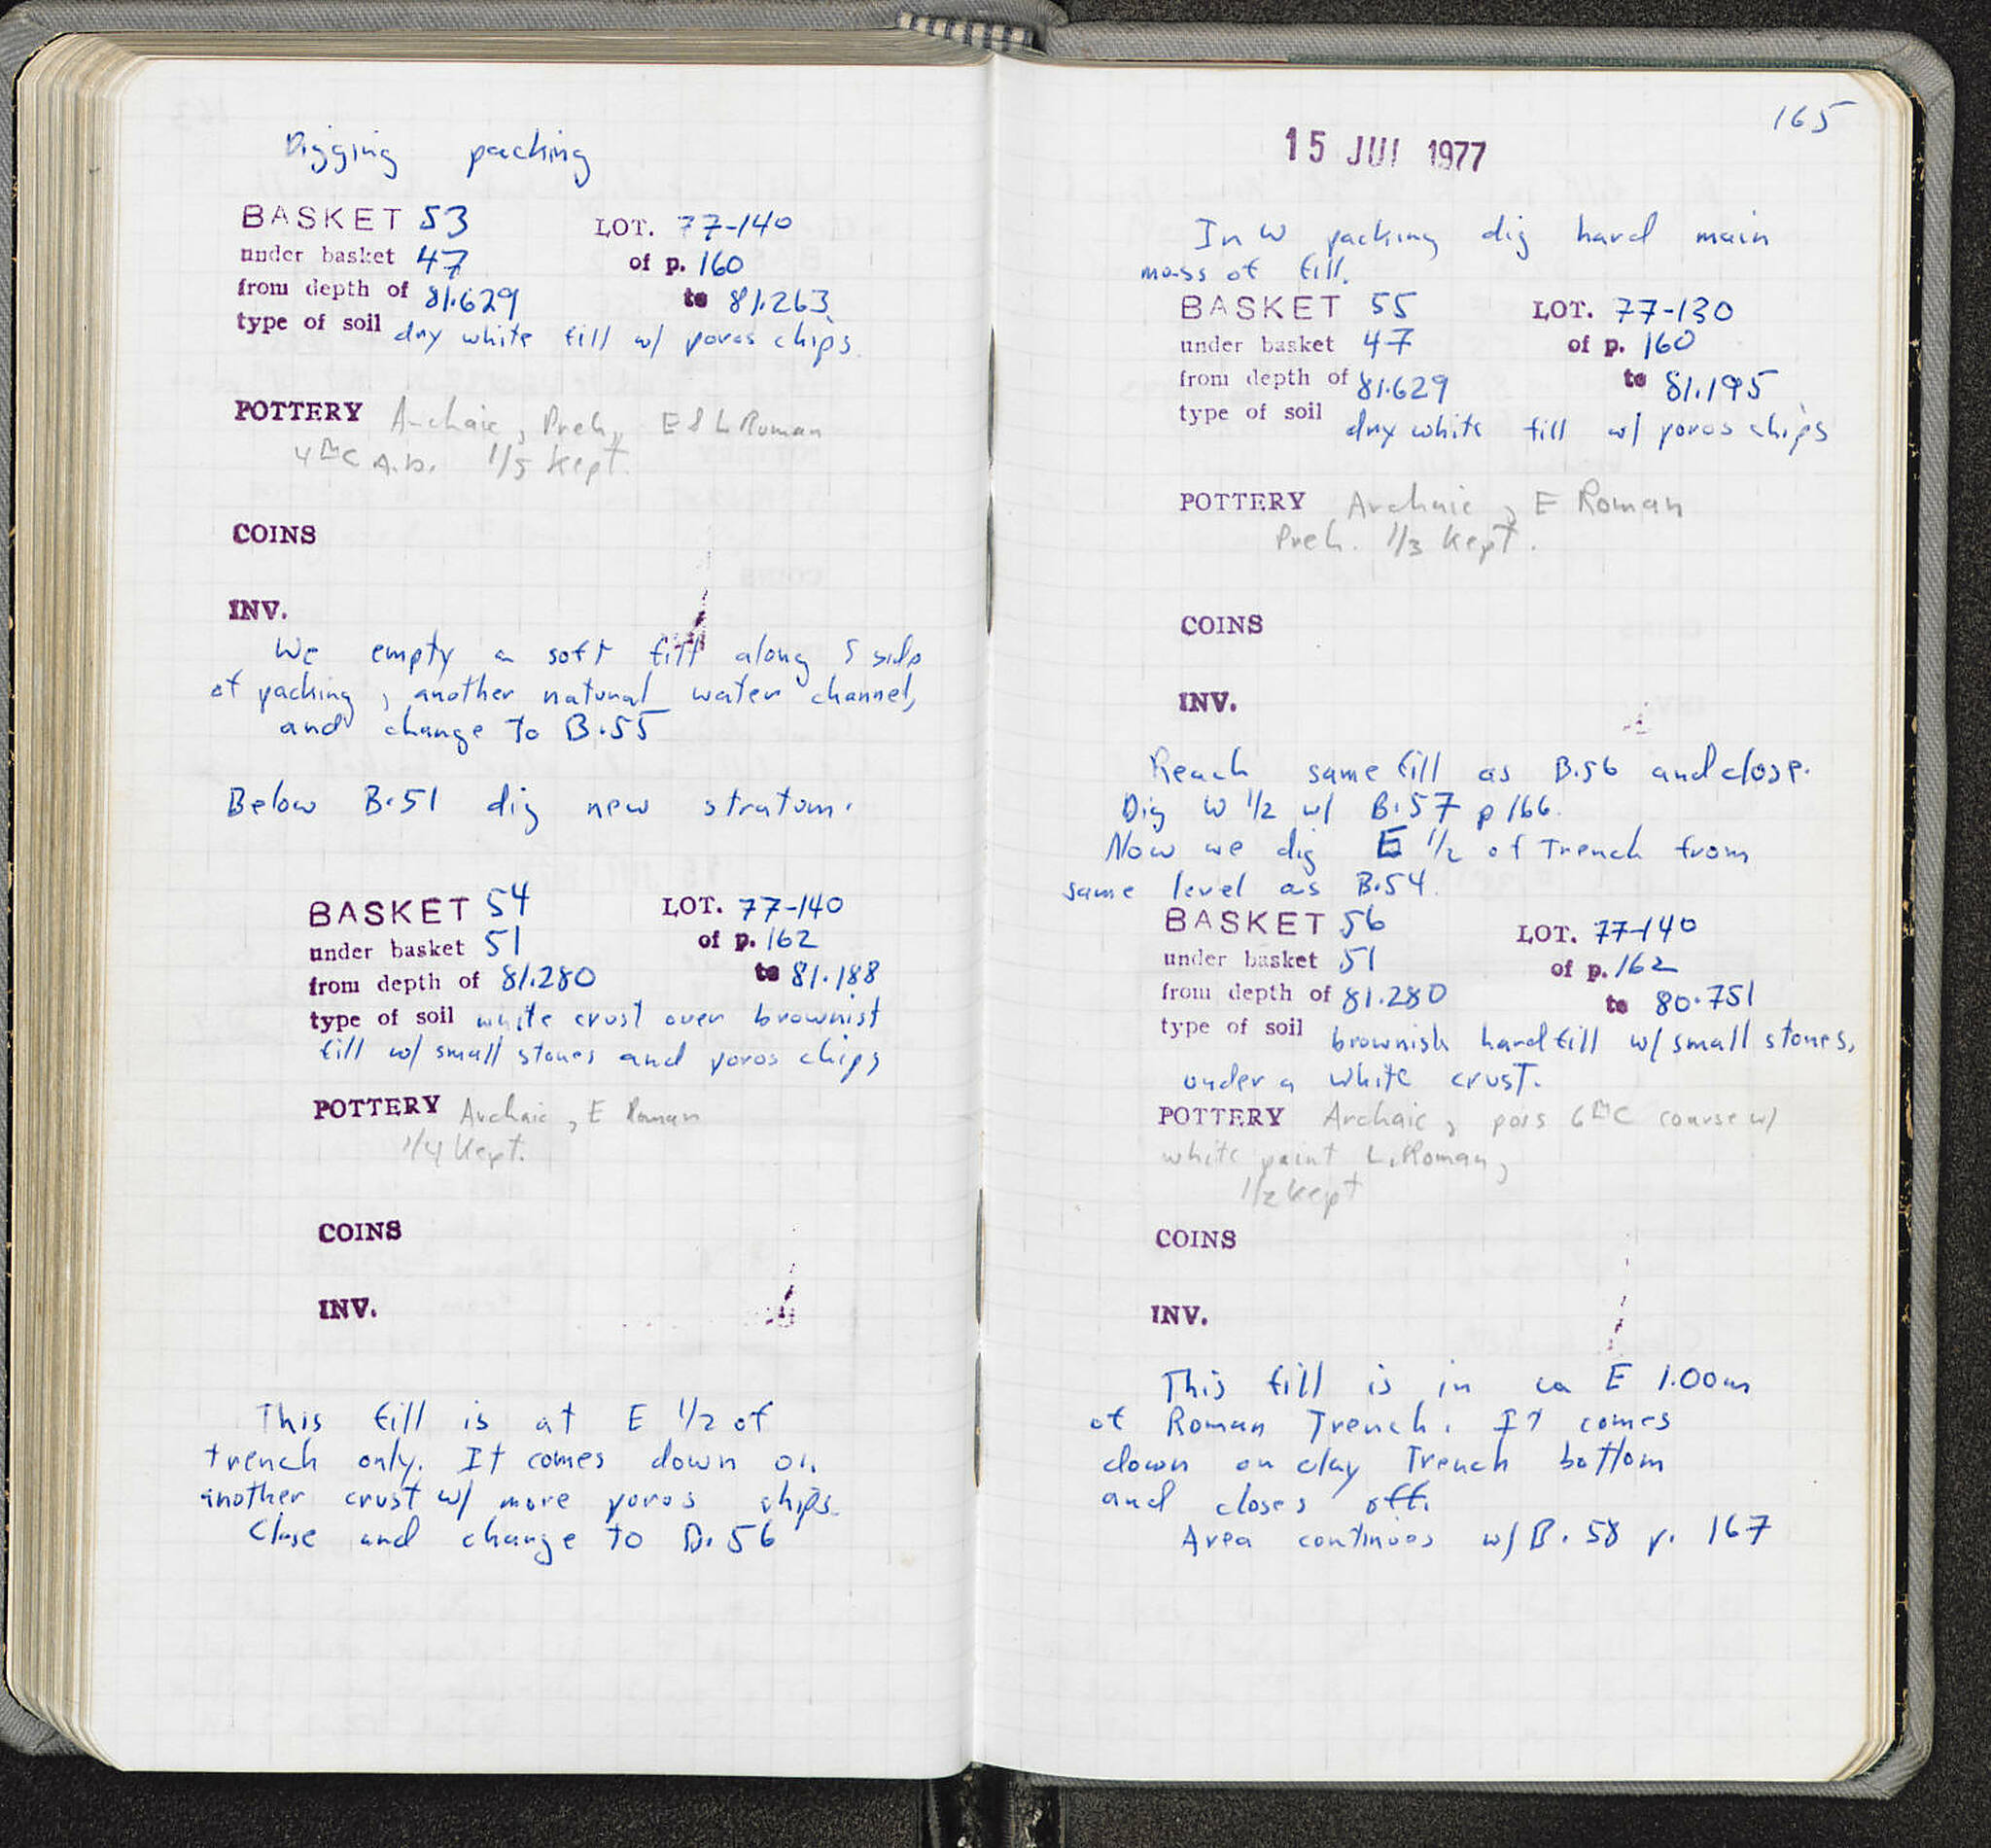 Digging packing
BASKET 53 LOT. 77-140
under basket 47 of p. 160
from depth of 81.629 to 81.263
type of soil dry white fill w/ poros chips
POTTERY Archaic, Preh, E & L Roman
4thC A.D. 1/5 kept.
COINS
INV.
We empty a soft fill along S side
of packing, another natural water channel,
and change to B.55
Below B.51 dig new stratum.
BASKET 54 LOT. 77-140
under basket 51 of p. 162
from depth of 81.280 to 81.188
type of soil white crust over brownist
fill w/ small stones and poros chips
POTTERY Archaic, E Roman
1/4 kept.
COINS
INV.
This fill is at E 1/2 of
trench only. It comes down on
another crust w/ more poros chips.
Close and change to B.56
165
15 JUL 1977
In W packing dig hard main
mass of fill.
BASKET 55 LOT. 77-130
under basket 47 of p. 160
from depth of 81.629 to 81.195
type of soil dry white fill w/ poros chips
POTTERY Archaic, E Roman
Preh. 1/3 kept.
COINS
INV.
Reach same fill as B.56 and close.
Dig W 1/2 w/ B.57 p 166.
Now we dig E 1/2 of Trench from
same level as B.54.
BASKET 56 LOT. 77-140
under basket 51 of p. 162
from depth of 81.280 to 80.751
type of soil brownish hard fill w/ small stones,
under a white crust.
POTTERY Archaic, poss 6thC course w/
white paint L.Roman,
1/2 kept
COINS
INV.
This fill is in ca E 1.00m
of Roman Trench. It comes
down on clay Trench bottom
and closes off.
Area continues w/ B.58 p. 167